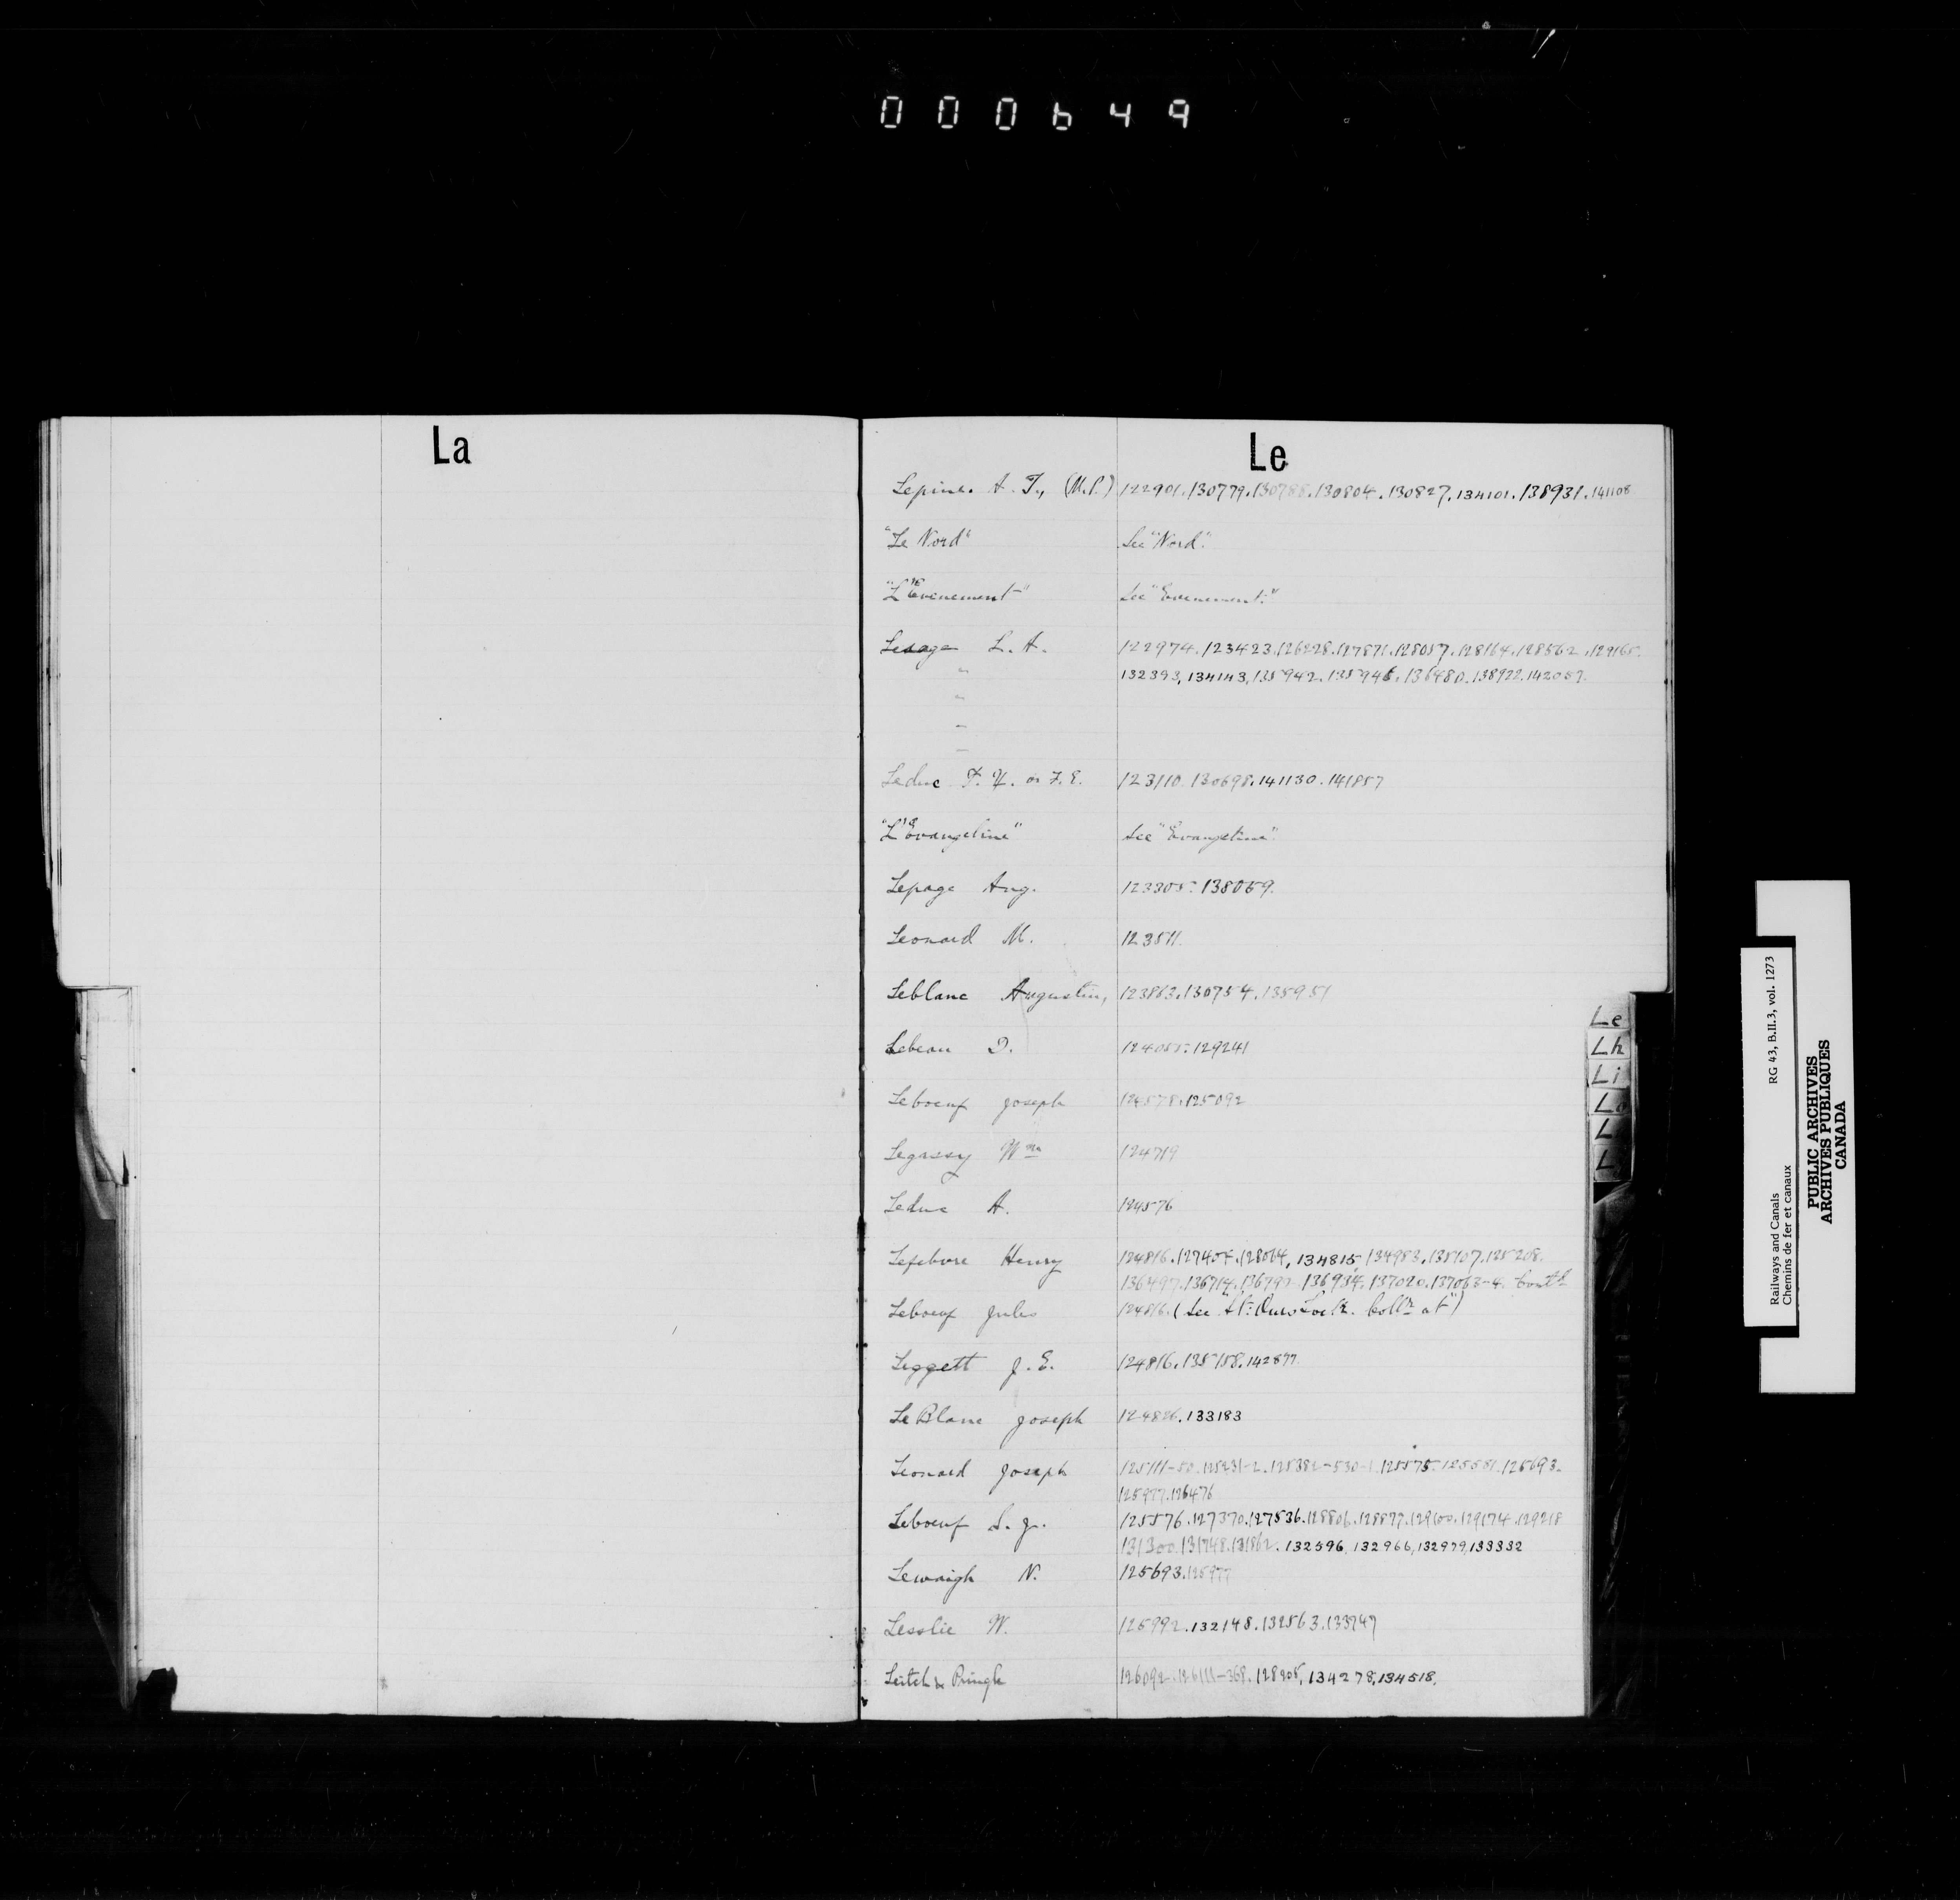 000649
La
Le
Lepine. A. T., (M.P.) 122901.130779.130788.130804.130827.134101.138931.141108
"Le Nord" See "Nord".
"L'Evenement" See "Evenement."
Lesage L. A. 122974.123423.126228.127871.128057.128164.128562.129165.
" 132393,134143,135942.135946.136480.138922.142057.
"
"
"
Leduc F. X. or F. E. 123110.130698.141130.141857
"L'Evangeline" See "Evangeline"
Lepage Aug. 123305.138059.
Leonard M. 123511.
Leblanc Augustin, 123863.130754.135951
Lebeau D. 124055.129241
Leboeuf Joseph 124578.125092
Legassy Wm 124719
Leduc A. 124576
Lefebvre Henry 124816.127404.128064,134815,134983.135107.125208.
136497.136714.136792.136934.137020.137063-4. Contd
Leboeuf Jules 124816. (See "St. Ours Lock. Collr at")
Leggett J. E. 124816.135158.142877
LeBlanc Joseph 124826.133183
Leonard Joseph 125111-50.125231-2.125382-530-1.125575.125581.125693.
125977.126476
Leboeuf L. J. 125576.127370.127536.128806.128877.129100.129174.129218
131300.131748.131862.132596,132966,132979,133332
Lewaigh N. 125693.125977
Lesslie W. 125992.132148.132563.133747
Leitch & Pringle 126092.126111-368.128205,134278,134518,
Le
Lh
Li
Lo
L
L
RG 43, B.II.3, vol. 1273
Railways and Canals
Chemins de fer et canaux
PUBLIC ARCHIVES
ARCHIVES PUBLIQUES
CANADA